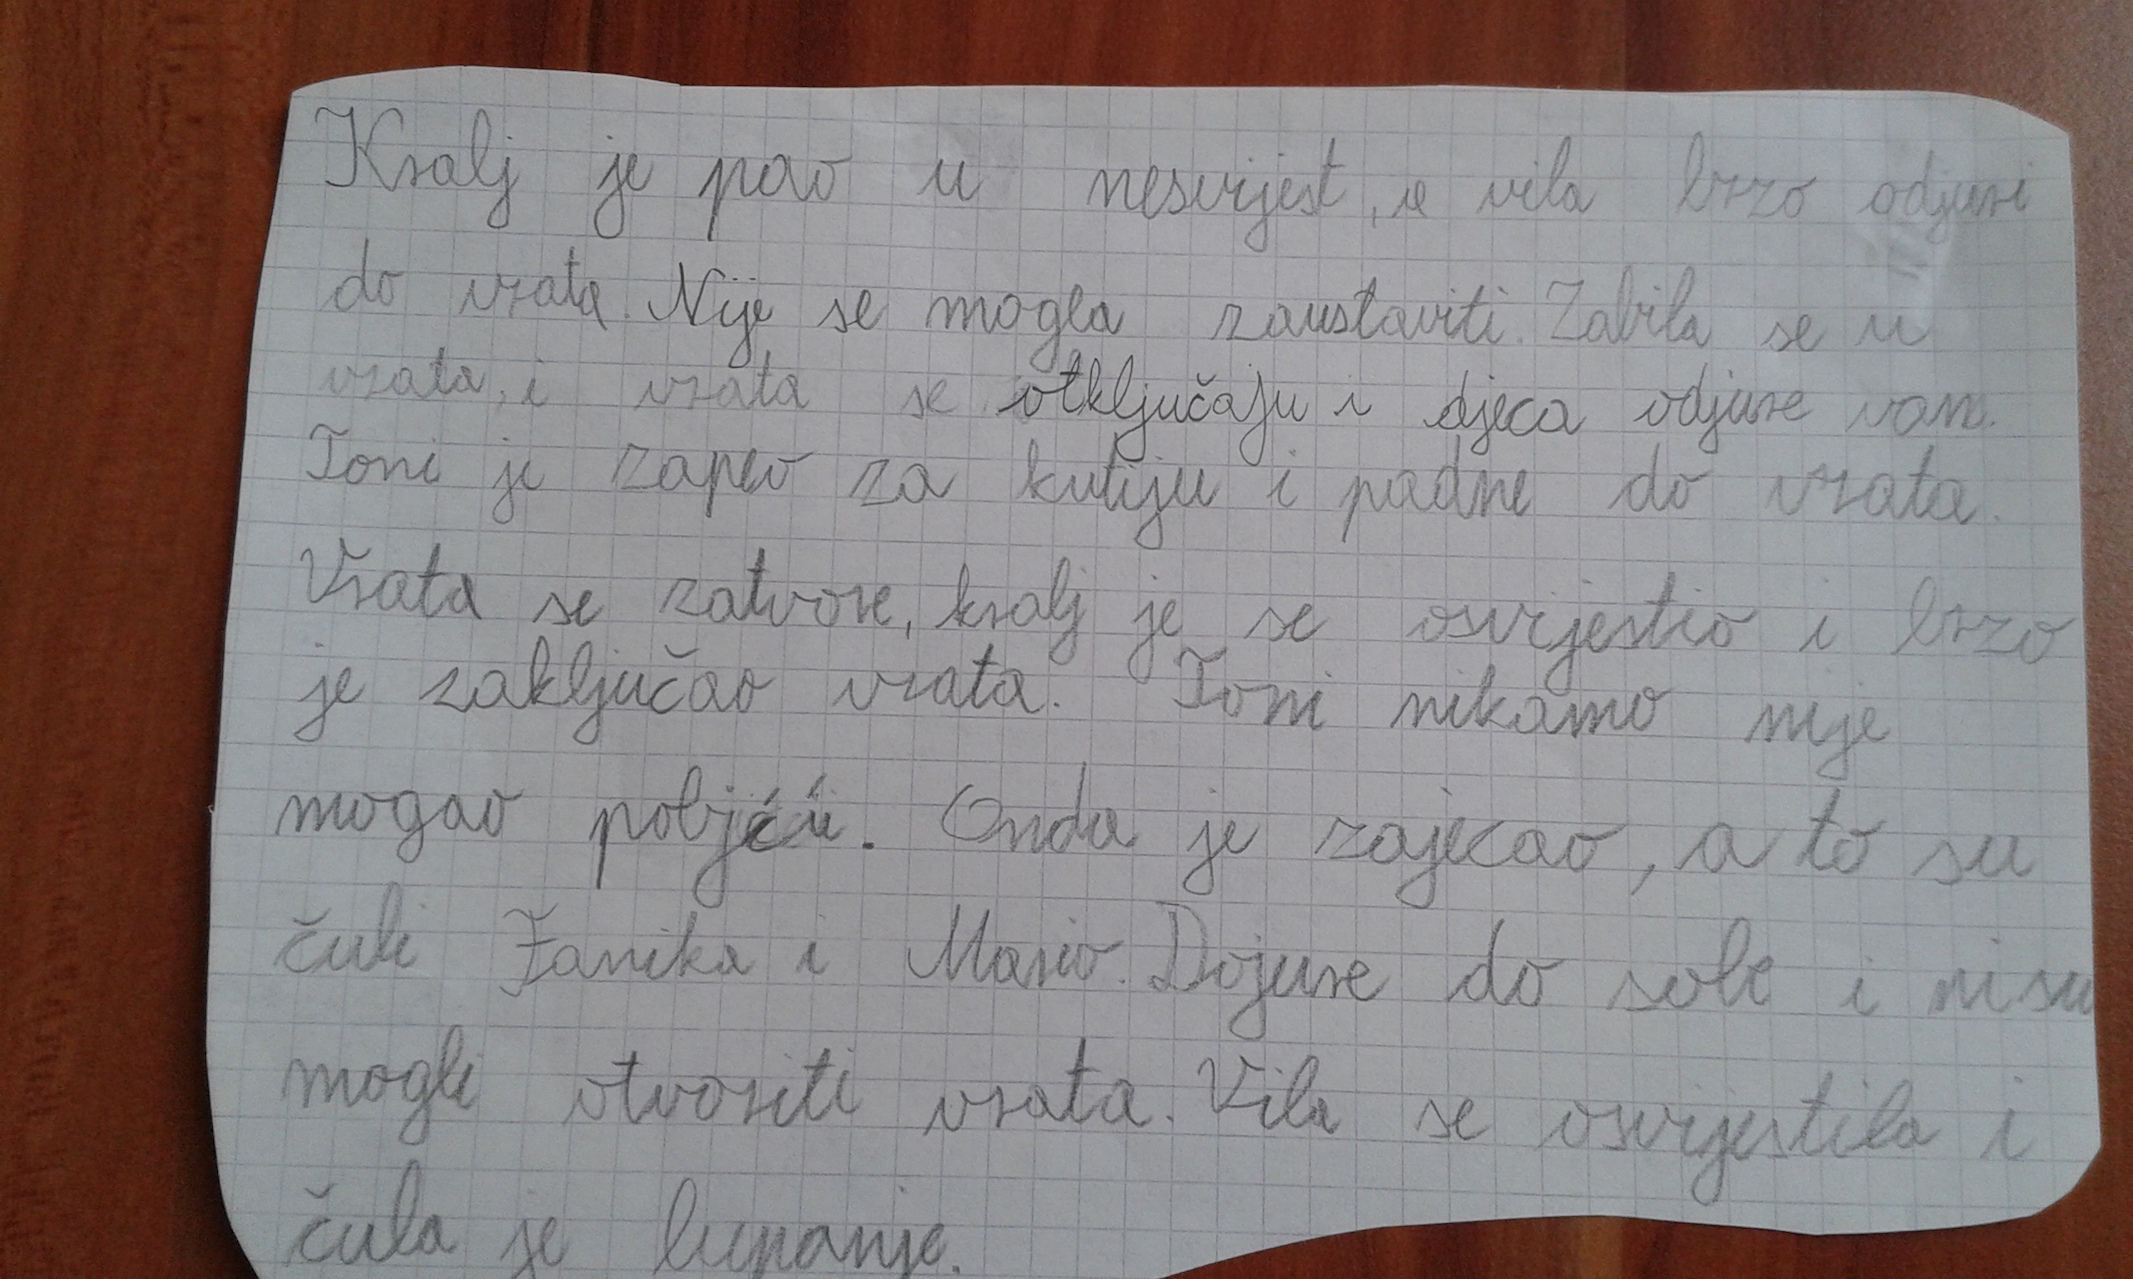 Kralj je pao u nesvijest, a vila brzo odjuri
do vrata. Nije se mogla zaustaviti. Zabila se u
vrata, i vrata se otključaju i djeca odjure van.
Toni je zapeo za kutiju i padne do vrata.
Vrata se zatvore, kralj je se osvijestio i brzo
je zaključao vrata. Toni nikamo nije
mogao pobjći. Onda je zajecao, a to su
čuli Janika i Mario. Dojure do sobe i nisu
mogli otvoriti vrata. Vila se osvijestila i
čula je lupanje.